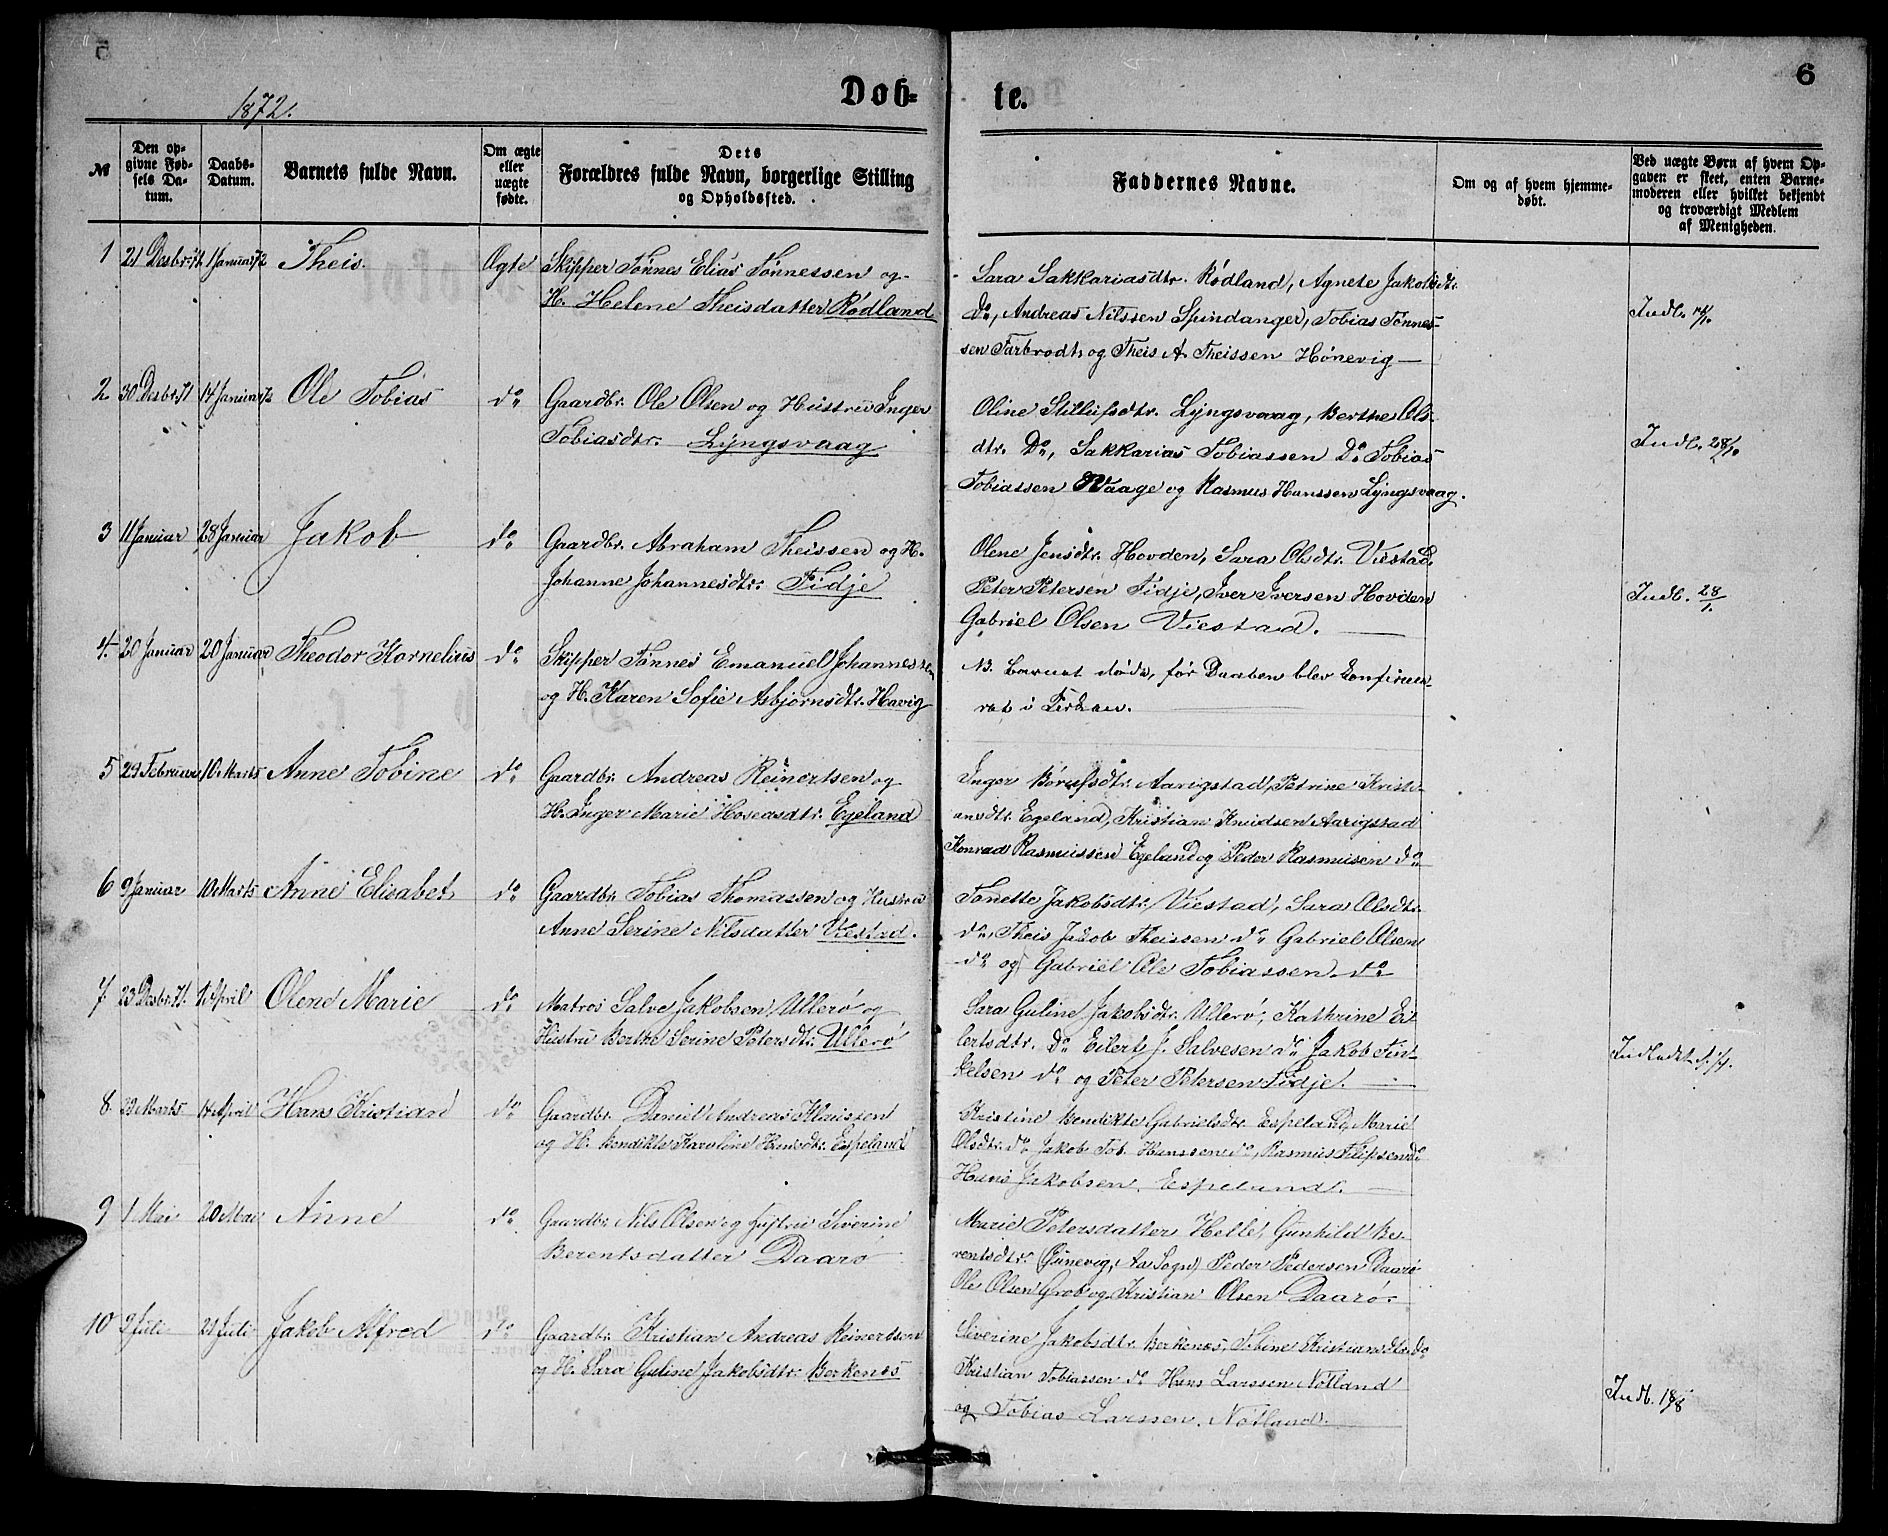 5
Døb-
te.
6
1872.
№
Den op-
givne Fød-
sels Da-
tum.
Daabs-
Datum.
Barnets fulde Navn.
Om ægte
eller
uægte
fødte.
Dets
Forældres fulde Navn, borgerlige Stilling
og Opholdssted.
Faddernes Navne.
Om og af hvem hjemme-
døbt.
Ved uægte Børn af hvem Op-
gaven er skeet, enten Barne-
moderen eller hvilket bekjendt
og troværdigt Medlem
af Menigheden.
1 21 Desbr. 71 1 Januar 72 Theis. Ægte Skipper Tønnes Elias Tønnessen og
H. Helene Theisdatter Rødland
Sara Sakkariasdtr. Rødland, Agnete Jakobsdtr.
Do, Andreas Nilssen Spindanger, Tobias Tønnes-
sen Farbrodt, og Theis A. Theissen Hønevig
Indb.
2. 30 Desbr. 71 14 Januar 72 Ole Tobias do Gaardbr. Ole Olsen og Hustru Inger
Tobiasdtr. Lyngsvaag
Oline Stillufsdtr. Lyngsvaag, Berthe Ols-
dtr. Do, Sakkarias Tobiassen Do Tobias
Tobiassen Waage og Rasmus Hanssen Lyngsvaag.
Indb. 28/1.
3 11 Januar 28 Januar Jakob do Gaardbr. Abraham Theissen og H.
Johanne Johannesdtr. Fidje
Olene Jensdtr. Hovden, Sara Olsdtr. Viestad,
Peter Petersen Fidje, Iver Iversen Hovden
Gabriel Olsen Viestad.
Indb. 28/1.
4. 20 Januar 20 Januar Theodor Kornelius do Skipper Tønnes Emanuel Johannessen
og H. Karen Sofie Asbjørnsdtr. Havig
NB. Barnet døde, før Daaben blev konfirme-
ret i Kirken.
5 29 Februar 10 Marts Anne Tobine do Gaardbr. Andreas Reinertsen og
H. Inger Marie Hoseasdtr. Egeland
Inger Børufsdtr. Aarigstad, Petrine Kristi-
ansdtr. Egeland, Kristian Knudsen Aarigstad
Konrad Rasmussen Egeland og Peder Rasmusen do
6 9 Januar 10 Marts Anne Elisabet do Gaardbr. Tobias Thomassen og Hustru
Anne Serine Nilsdatter Viestad.
Tonette Jakobsdtr. Viestad, Sara Olsdtr.
do, Theis Jakob Theissen do Gabriel Olsen
do og Gabriel Ole Tobiassen do
7 23 Desbr. 71. 1 April Olene Marie do Matros Salve Jakobsen Ullerø og
Hustru Berthe Serine Petersdtr. Ullerø
Sara Guline Jakobsdtr. Ullerø, Kathrine Ei-
lertsdtr. Do Eilert J. Salvesen do Jakob Fin-
kelsen do og Peter Petersen Fidje.
Indledet d. 1/4.
8. 29 Marts 14 April Hans Kristian do Gaardbr. Daniel Andreas Klausen
og H. Bendikte Karoline Hansdtr. Espeland
Kristine Bendikte Gabrielsdtr. Espeland, Marie
Olsdtr. do Jakob Tob. Hanssen do, Rasmus Filipsen do
Hans Jakobsen. Espeland.
9 1 Mai 20 Mai Anne do Gaardbr. Nils Olsen og Hustru Siverine
Berentsdatter Daarø
Marie Petersdatter Helle, Gunhild Be-
rentsdtr. (Gunevig, Aa Sogn) Peder Pedersen Daarø
Ole Olsen Grob og Kristian Olsen Daarø.
10 9 Juli 21 Juli Jakob Alfred do Gaardbr. Kristian Andreas Reinertsen
og H. Sara Guline Jakobsdtr. Berkenes
Siverine Jakobsdtr. Berkenes, Tobine Kristiansdtr. do
Kristian Tobiassen do Hans Larssen Nøtland
og Tobias Larssen. Nøtland.
Indb. 18/8